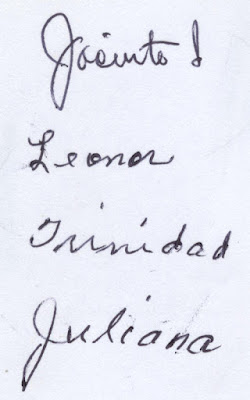 Jacinto !
Leonor
Trinidad
Juliana